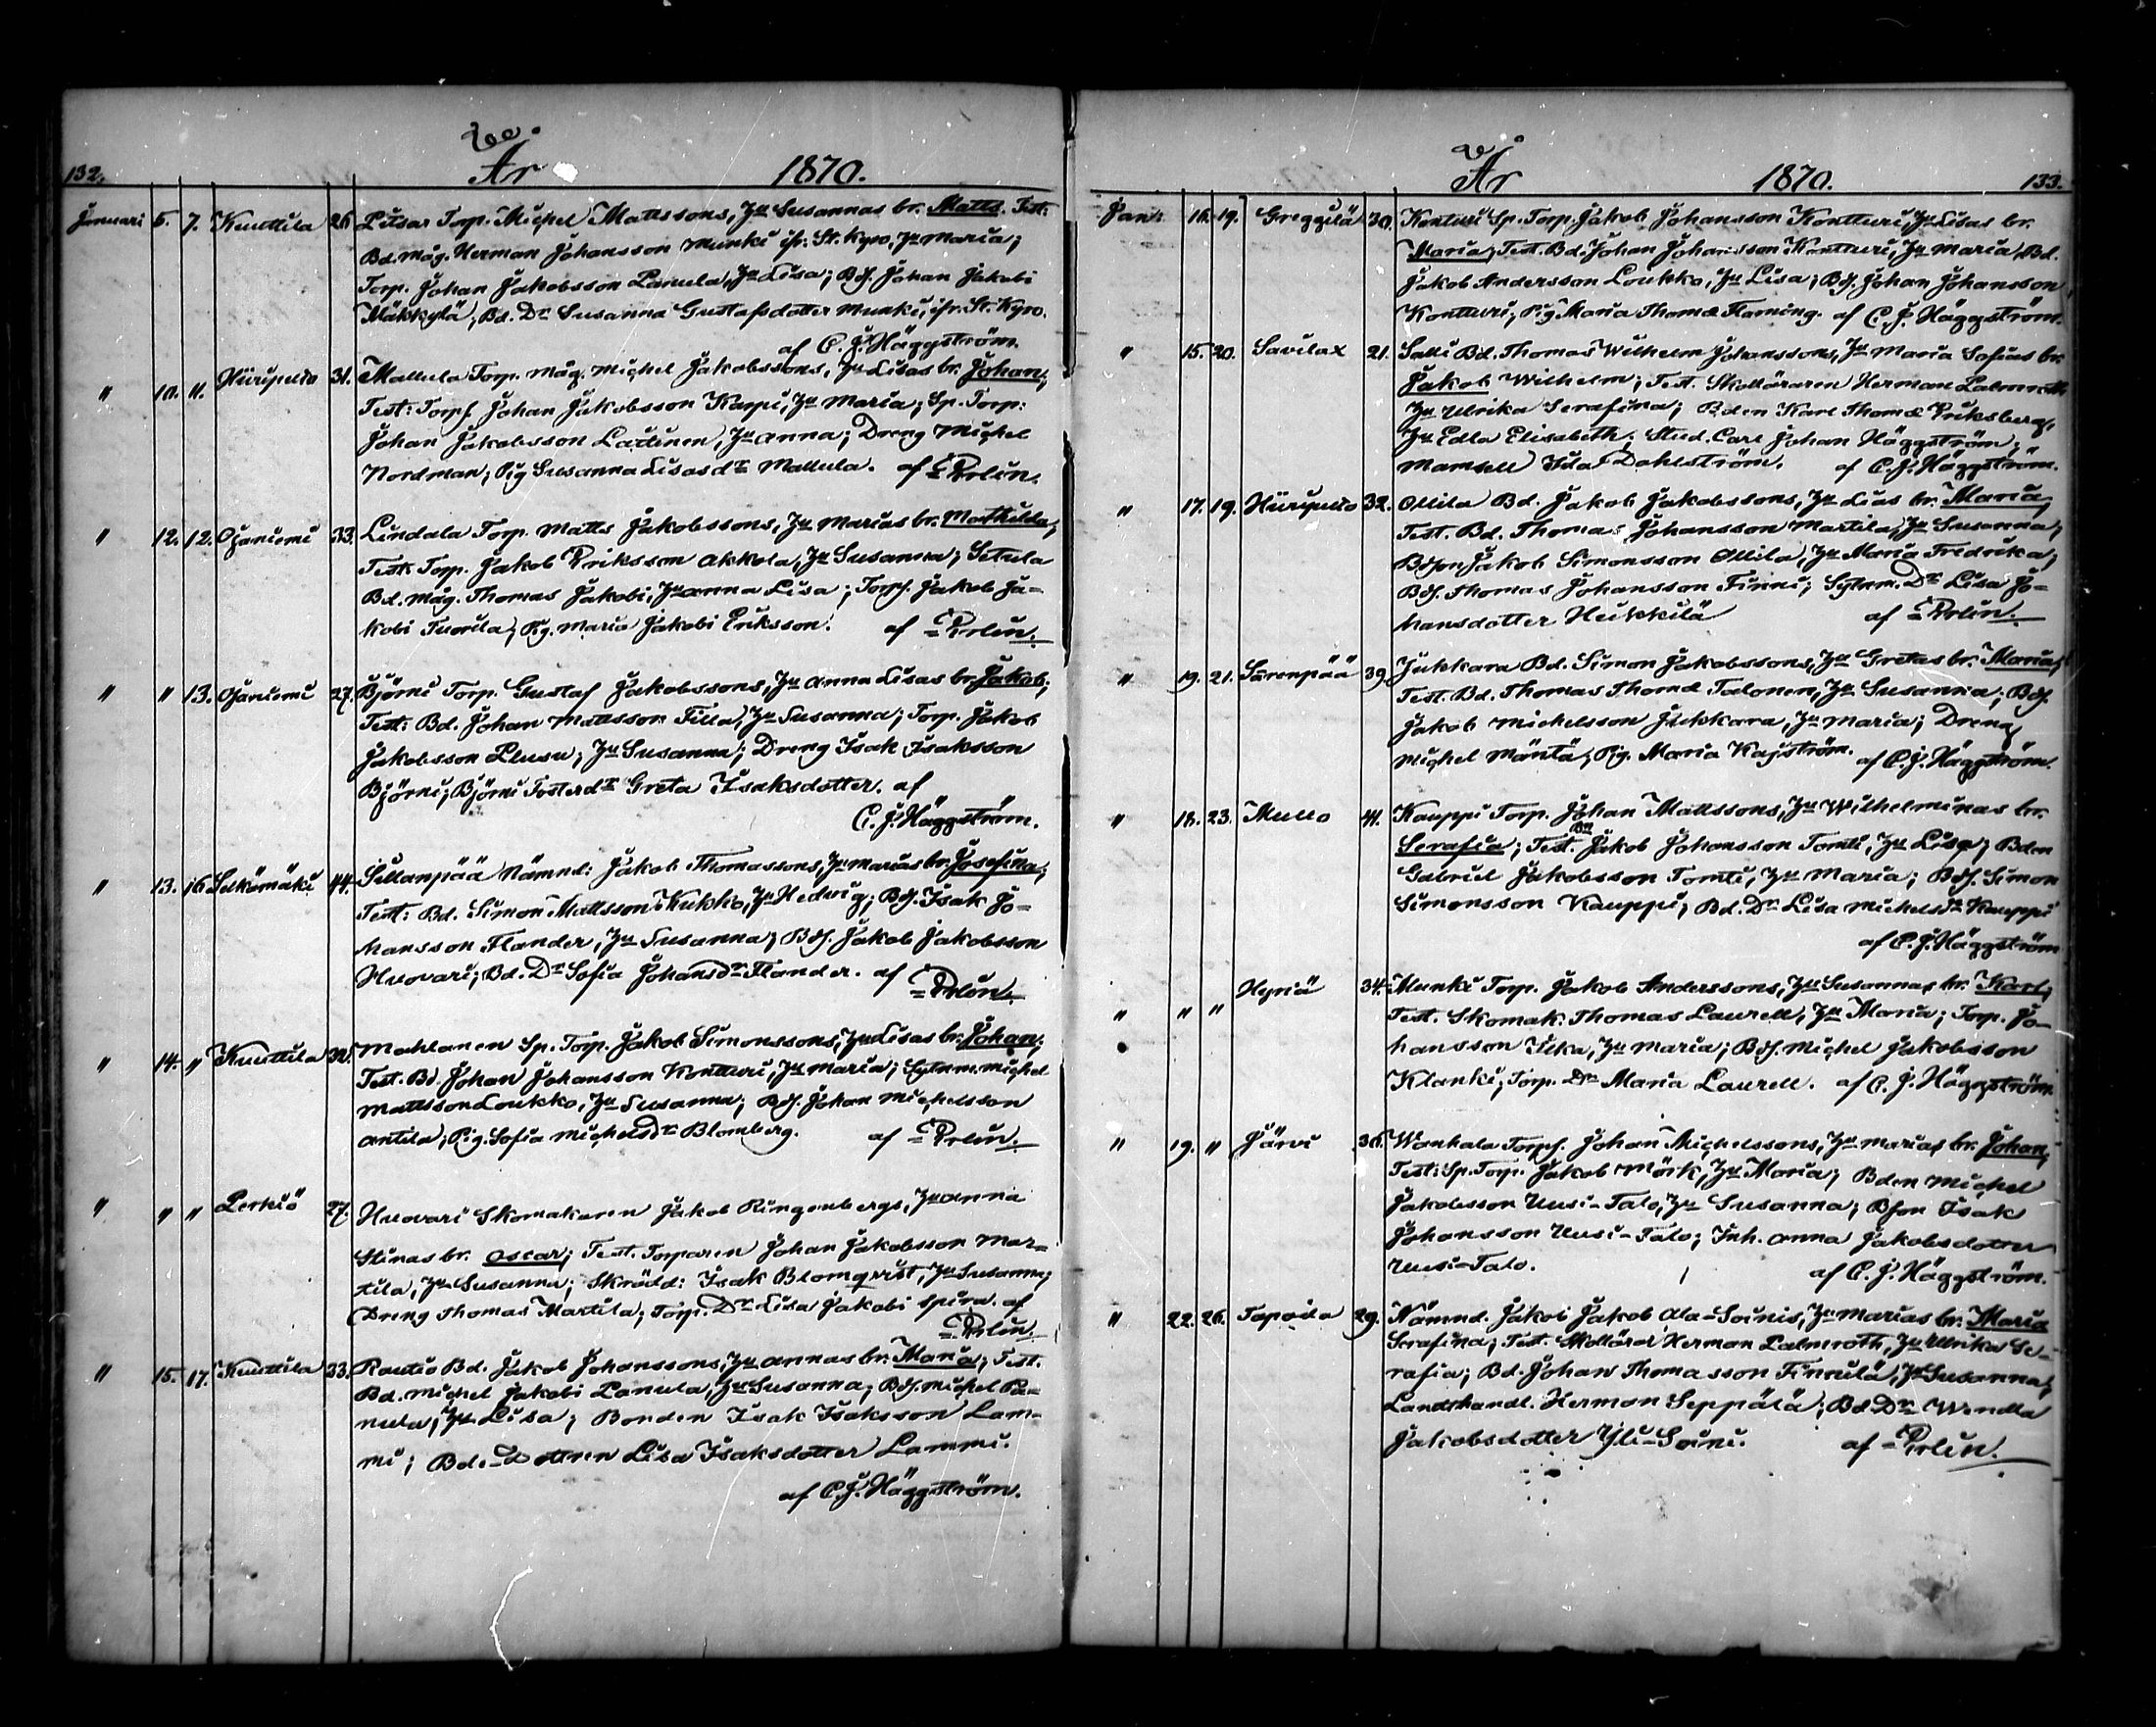 132.
År 1870.
Januari 5. 7. Knuttila 26. Torp. Michel Mattssons, Hu Susannas br. Matts. Test:
Bd. måg. Herman Johansson Munki ifr. St. Kyro, Hu Maria;
Torp. Johan Jakobsson Panula, Hu Lisa; BdS. Johan Jakobi
Mäkkylä; Bd. Dr Susanna Gustafsdotter Munki, ifr. St. Kyro.
af C. J. Häggström.
" 10. 11. Hiiripelto 31. Mallula Torp. måg. Michel Jakobssons, Hu Lisas br. Johan;
Test: Torpf. Johan Jakobsson Karpi, Hu Maria; Sp. Torp:
Johan Jakobsson Laitinen, Hu Anna; Dreng Michel
Nordman; Pig Susanna Lisasdr Mallula. af
" 12. 12. Ojaniemi 33. Lindala Torp. Matts Jakobssons, Hu Marias br. Mathilda;
Test. Torp. Jakob Eriksson Akkola, Hu Susanna;
Bd. måg. Thomas Jakobi, Hu Anna Lisa; Torpf. Jakob Ja-
kobi Tuorila; Pig. Maria Jakobi Eriksson. af
" " 13. Ojaniemi 27. Björni Torp. Gustaf Jakobssons, Hu Anna Lisas br. Jakob;
Test: Bd. Johan Mattsson Filla, Hu Susanna; Torp. Jakob
Jakobsson Hu Susanna; Dreng Isak Isaksson
Björni; Björni Fosterdr Greta Isaksdotter. af
C. J. Häggström.
" 13. 16. Selkämäki 44. Sillanpää Nämnd: Jakob Thomassons, Hu Marias br. Josefina;
Test: Bd. Simon Mattsson Kukko, Hu Hedvig; BdS. Isak Jo-
hansson Flander, Hu Susanna; BdS. Jakob Jakobsson
Huovari; Bd. Dr Sofia Johansdr Flander. af
" 14. " Knuttila 32. Mahlanen Sp. Torp. Jakob Simonssons, Hu Lisas br. Johan;
Test. Bd. Johan Johansson Kontturi, Hu Maria; Sytnm. Michel
Mattsson Loukko, Hu Susanna; BdS. Johan Michelsson
Antila; Pig. Sofia Michelsdr Blomberg. af
" " " Perkiö 27. Huovari Skomakaren Jakob Ringenbergs, Hu Anna
Stinas br. Oscar; Test. Torparen Johan Jakobsson Mar-
tila, Hu Susanna; Skrädd: Isak Blomqvist, Hu Susanna;
Dreng Thomas Martila; Torp. Dr Lisa Jakobi Spira. af
" 15. 17. Knuttila 33. Rautio Bd. Jakob Johanssons, Hu Annas br. Maria; Test.
Bd. Michel Jakobi Panula, Hu Susanna; BdS. Michel Pa-
nula, Hu Lisa; Bonden Isak Isaksson Lam-
mi; Bd.-Dottren Lisa Isaksdotter Lammi.
af C. J. Häggström.
År 1870. 133.
Jan: 16. 19. Greggilä 30. Konturi Sp. Torp. Jakob Johansson Kontturi, Hu Lisas br.
Maria; Test. Bd. Johan Johansson Kontturi, Hu Maria, Bd.
Jakob Andersson Loukko, Hu Lisa; BdS. Johan Johansson
Kontturi; Pig Maria Thomæ Flaming. af C. J. Häggström.
" 15. 20. Savilax 21. Salli Bd. Thomas Wilhelm Johanssons, Hu Maria Sofias br.
Jakob Wilhelm; Test. Skolläraren Herman Palmroth
Hu Ulrika Serafina; Bden Karl Thomæ Eriksberg,
Hu Edla Elisabeth; Stud. Carl Johan Häggström;
Mamsell Ida Dahlström. af C. J. Häggström.
" 17. 19. Hiiripelto 32. Ollila Bd. Jakob Jakobssons, Hu Lisas br. Maria;
Test. Bd. Thomas Johansson Martila, Hu Susanna;
BdSon Jakob Simonsson Ollila, Hu Maria Fredrika;
BdS. Thomas Johansson Finni; Sytnm. Dr Lisa Jo-
hansdotter Heikkilä af
" 19. 21. Sarenpää 39. Jukkara Bd. Simon Jakobssons, Hu Gretas br. Maria;
Test. Bd. Thomas Thomæ Talonen, Hu Susanna; BdS.
Jakob Michelsson Jukkara, Hu Maria; Dreng
Michel Mäntä; Pig. Maria Kajström. af C. J. Häggström.
" 18. 23. Mullo 44. Kauppi Torp. Johan Mattssons, Hu Wilhelminas br.
Serafia; Test. Bd Jakob Johansson Tomti, Hu Lisa; Bden
Gabriel Jakobsson Tomti, Hu Maria; BdS. Simon
Simonsson Kauppi; Bd. Dr Lisa Michelsdr Kauppi
af C. J. Häggström
" " " Hyriä 34. Munki Torp. Jakob Anderssons, Hu Susannas br. Karl;
Test. Skomak. Thomas Laurell, Hu Maria; Torp. Jo-
hansson Ilka, Hu Maria; BdS. Michel Jakobsson
Klanki; Torp. Dr Maria Laurell. af C. J. Häggström.
" 19. " Järvi 36. Wanhala Torpf. Johan Michelssons, Hu Marias br. Johan;
Test: Sp. Torp. Jakob Mörk, Hu Maria; Bden Michel
Jakobsson Uusi-Talo, Hu Susanna; Bson Isak
Johansson Uusi-Talo; Inh. Anna Jakobsdotter
Uusi-Talo. af C. J. Häggström.
" 22. 26. Tapoila 29. Nämnd. Jakob Jakob Ala-Soinis, Hu Marias br. Maria
Serafina; Test. Herman Palmroth, Hu Ulrika Se-
rafia; Bd. Johan Thomasson Finnilä, Hu Susanna;
Landthandl. Herman Seppälä; Bd. Dr Wendla
Jakobsdotter Yli-Soini. af